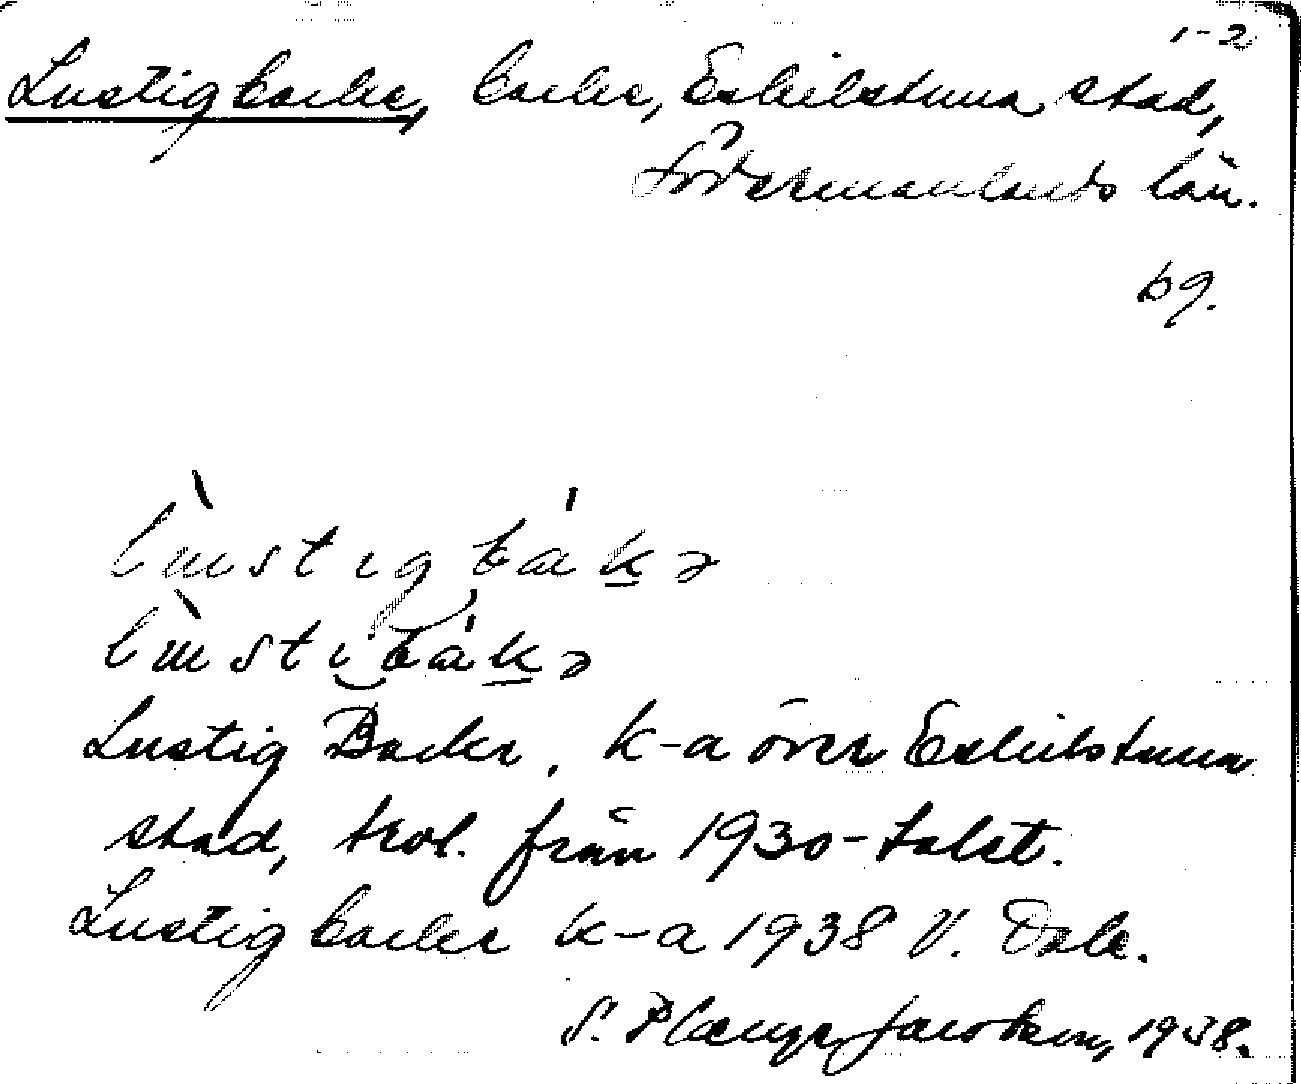 1-2
Lustigbacke, backe, Eskilstuna stad,
Södermanlands län.
bg.
lùstigbákə
lùstibákə
Lustig Backe, k-a över Eskilstuna
stad, trol. från 1930-talet.
Lustigbacke k-a 1938 V. Dale.
S. Plænge Jacobsen, 1938.